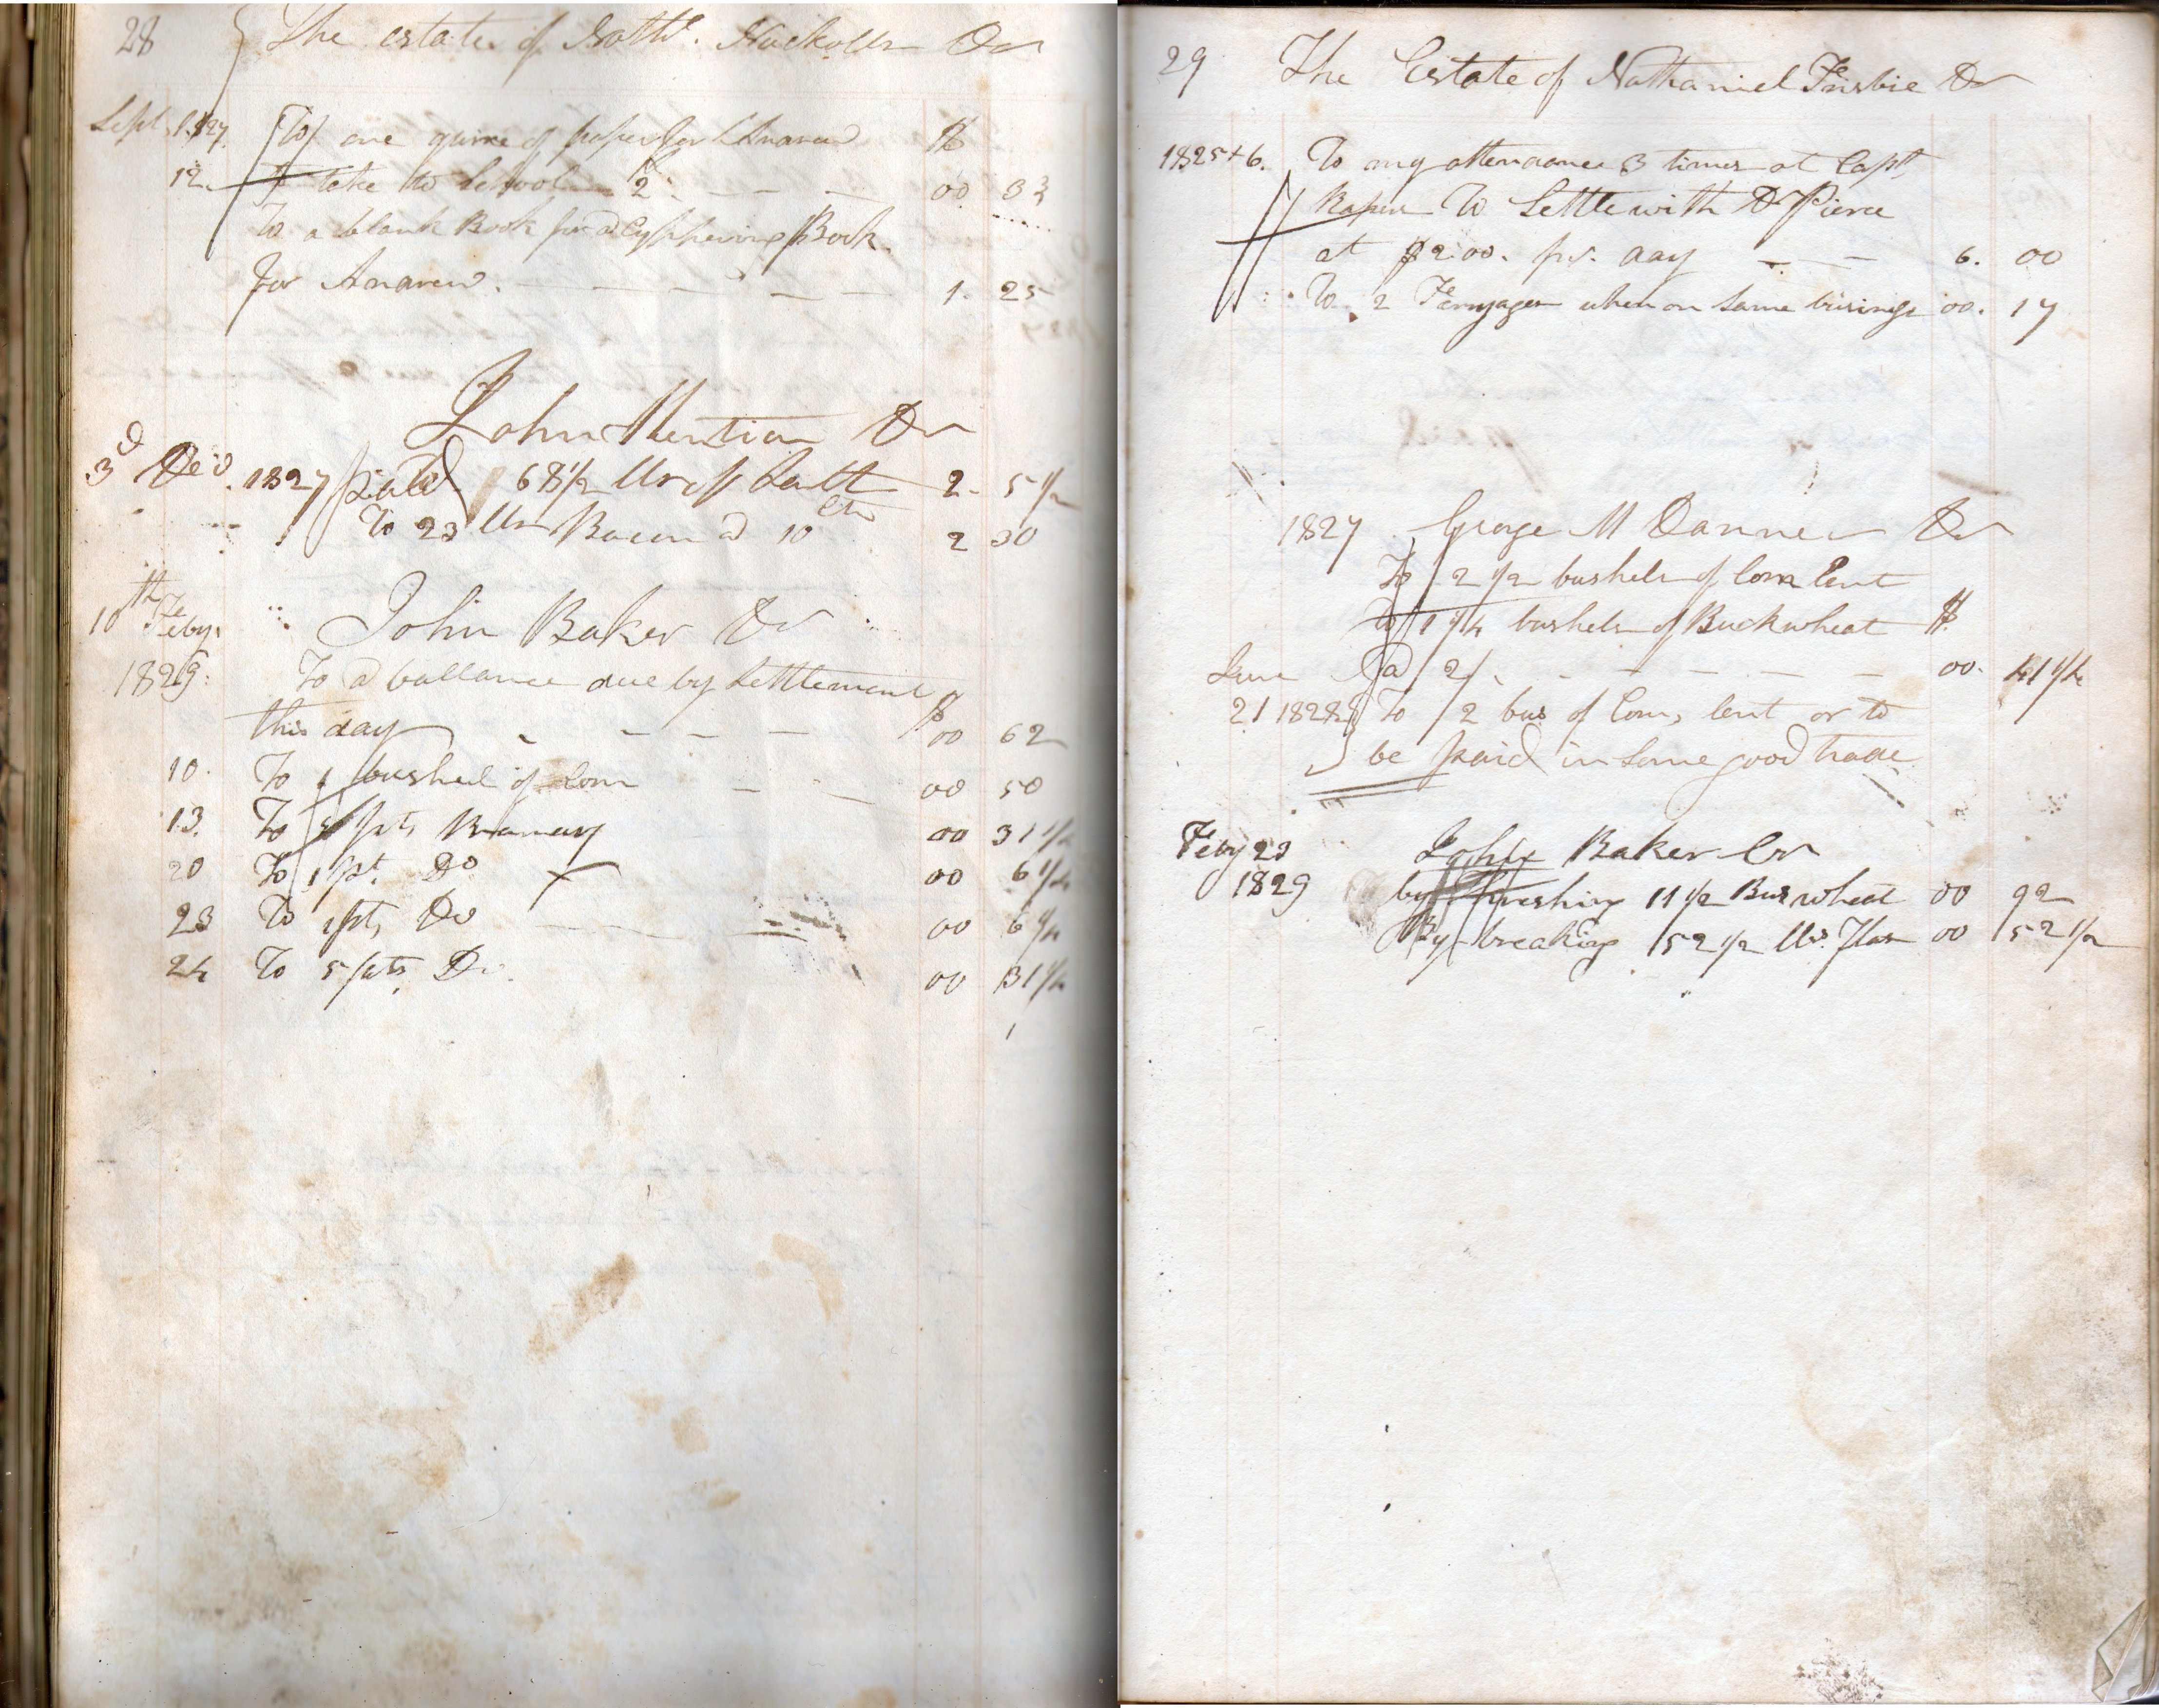 28 The estate of Nathl. Nuckolls Dr
Sept 1827 To one quire of paper for Andrew $
12 to take to School 2/. 00 33
To a blank Book for a Cyphering Book
for Andrew. 1. 25
John Dr
3d Decr. 1827 paid 68 1/2 lbs of Salt 2. 5 1/2
To 23 lbs Bacon @ 10 Cts 2 30
10th Feby. John Baker Dr
1829. To a ballance due by Settlement
this day $ 00 62
10. To 1 bushel of Corn 00 50
13. To 5 pts Brandy 00 31 1/4
20 To 1 pt. Do 00 6 1/4
23 To 1 pt, Do 00 6 1/4
24 To 5 pts. Do. 00 31 1/4
29 The Estate of Nathaniel Frisbie Dr
1825 + 6. To my attendance 3 times at Capt.
To Settle with D Pierce
at $2.00. pr. day 6. 00
To 2 Ferryages when on Same business 00. 17
1827 George M Danner Dr
To 2 1/2 bushels of Corn lent
To 1 1/4 bushels of Buckwheat $
June @ 2/. 00. 41 1/4
21 1828 To 2 bus of Corn, lent or to
be paid in Some good trade
Feby 23 John Baker Cr
1829 by threshing 11 1/2 Bus wheat 00 92
By breaking 52 1/2 lbs. Flax 00 52 1/2